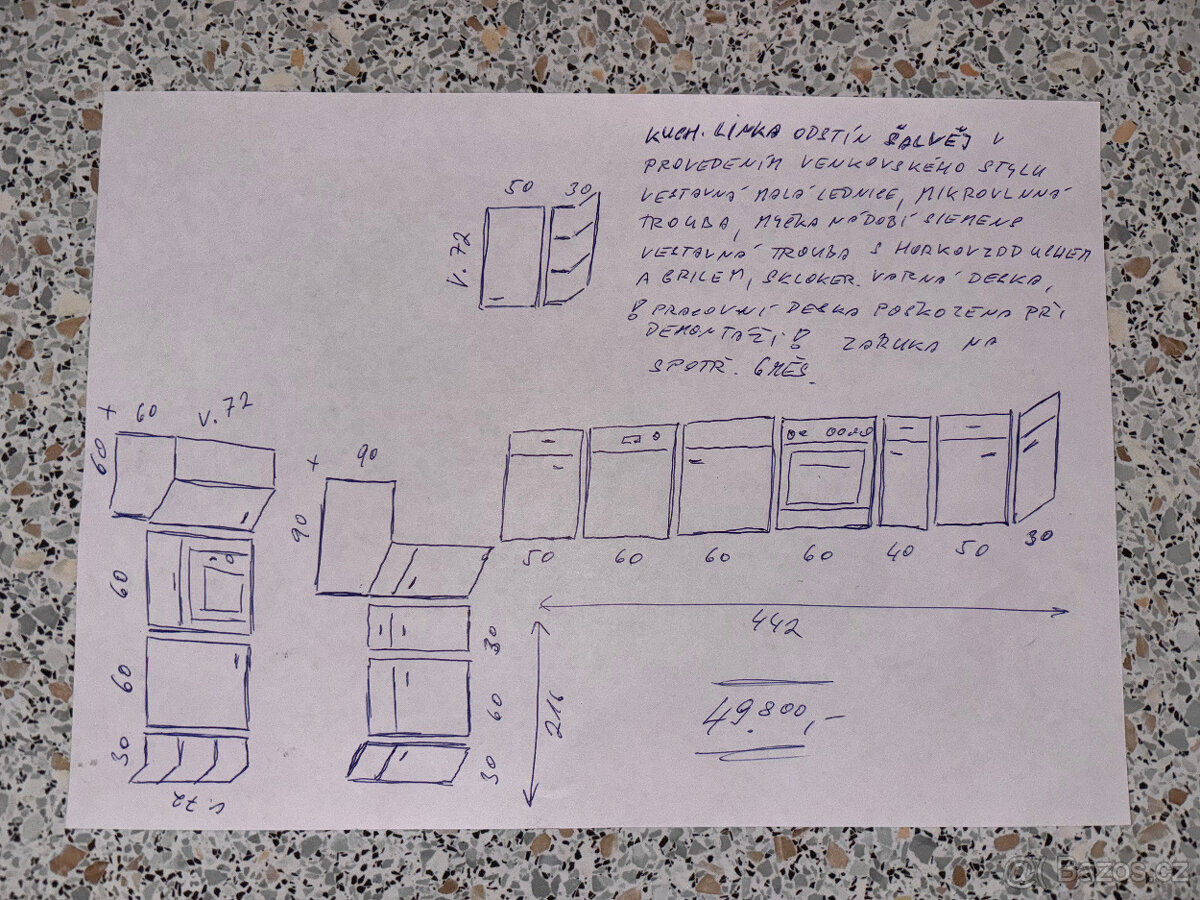 KUCH. LINKA ODSTÍN ŠALVĚJ V
PROVEDENÍM VENKOVSKÉHO STYLU
VESTAVNÁ MALÁ LEDNICE, MIKROVLNNÁ
TROUBA, MYČKA NÁDOBÍ SIEMENS
VESTAVNÁ TROUBA S HORKOVZDUCHEM
A GRILEM, SKLOKER. VARNÁ DESKA,
! PRACOVNÍ DESKA POŠKOZENA PŘI
DEMONTÁŽI! ZÁRUKA NA
SPOTŘ. 6 MĚS.
50 30
V. 72
+ 60 V. 72
60
60
60
30
V. 72
+ 90
90
30
60
30
50 60 60 60 40 50 30
442
216
49.800,-
@ Bazos.cz